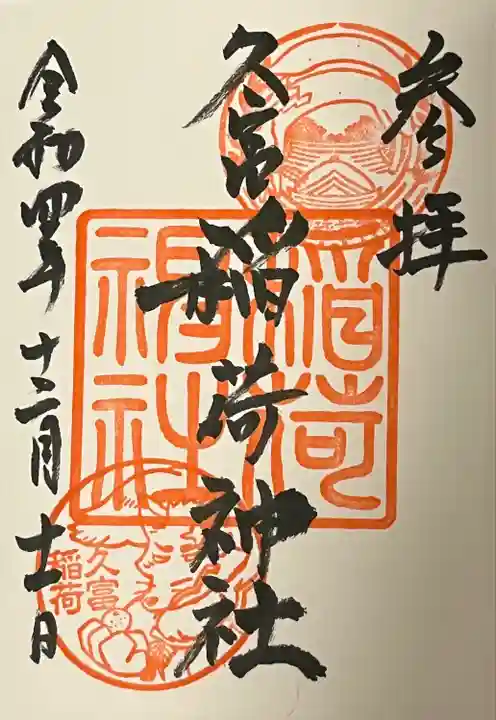 参拝
久富稲荷神社
令和四年十二月十一日
稲荷
神社
久富
稲荷